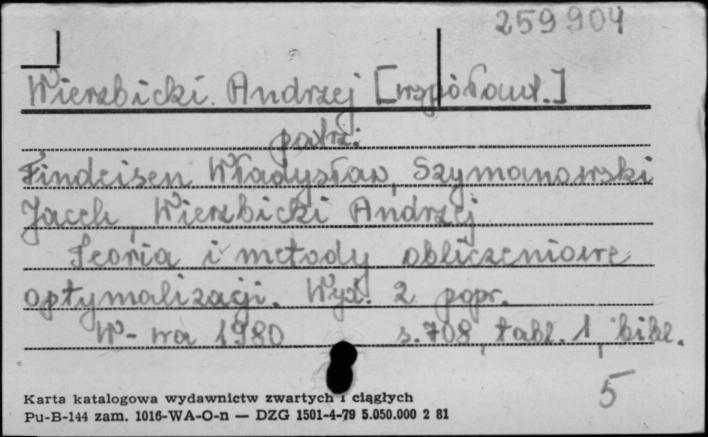 259904
Wierzbicki Andrzej [współaut.]
patrz:
Findeisen Władysław, Szymanowski
Jacek, Wierzbicki Andrzej
Teoria i metody obliczeniowe
optymalizacji. Wyd. 2 popr.
W-wa 1980 s. 708, tabl. 1, bibl.
5
Karta katalogowa wydawnictw zwartych i ciągłych
Pu-B-144 zam. 1016-WA-O-n — DZG 1501-4-79 5.050.000 2 81